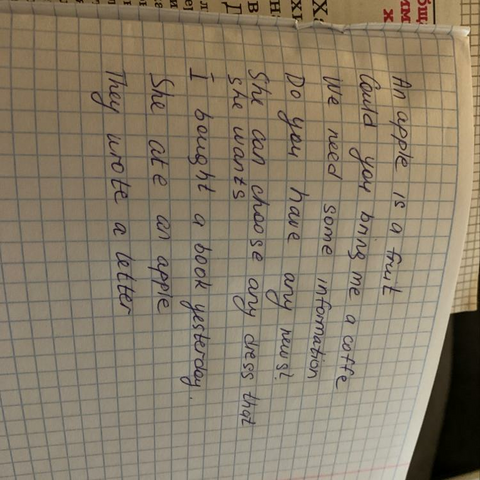 An apple is a fruit
Could you bring me a coffe
We need some information
Do you have any news?.
She can choose any dress that
she wants
I bought a book yesterday.
She ate an apple
They wrote a letter